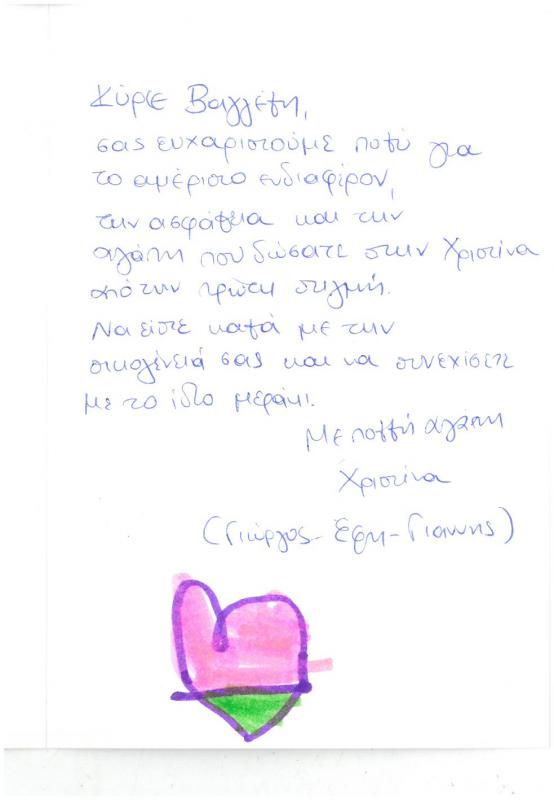 Κύριε Βαγγέλη,
σας ευχαριστούμε πολύ για
το αμέριστο ενδιαφέρον,
την ασφάλεια και την
αγάπη που δώσατε στην Χριστίνα
από την πρώτη στιγμή.
Να είστε καλά με την
οικογένειά σας και να συνεχίσετε
με το ίδιο μεράκι.
Με πολλή αγάπη
Χριστίνα
(Γιώργος - Έφη - Γιάννης)